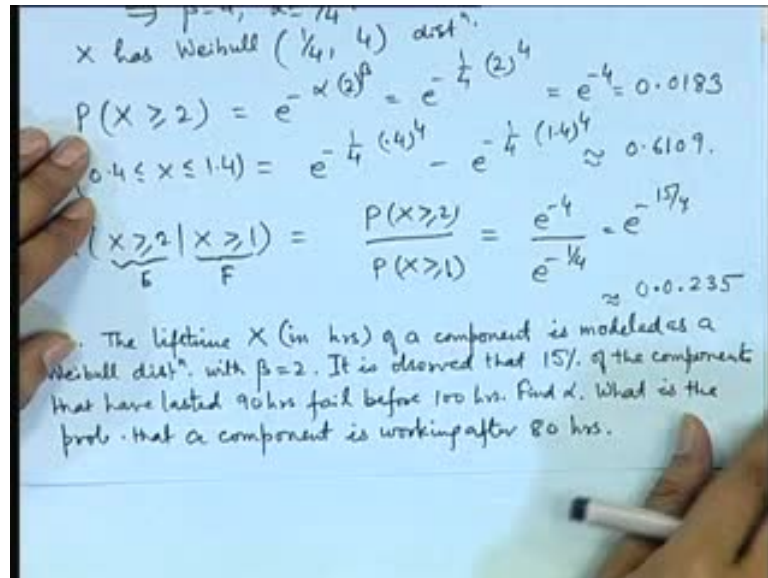 ⇒ β=4, α=1/4
X has Weibull (1/4, 4) distⁿ.
P(X ≥ 2) = e^{-α(2)^β} = e^{-1/4 (2)^4} = e^{-4} = 0.0183
(0.4 ≤ X ≤ 1.4) = e^{-1/4 (.4)^4} - e^{-1/4 (1.4)^4} ≈ 0.6109.
(X ≥ 2 | X ≥ 1) = P(X ≥ 2) / P(X ≥ 1) = e^{-4} / e^{-1/4} = e^{-15/4}
E F
≈ 0.0.235
. The lifetime X (in hrs) of a component is modeled as a
Weibull distⁿ. with β=2. It is observed that 15% of the components
that have lasted 90 hrs fail before 100 hrs. Find α. What is the
prob. that a component is working after 80 hrs.